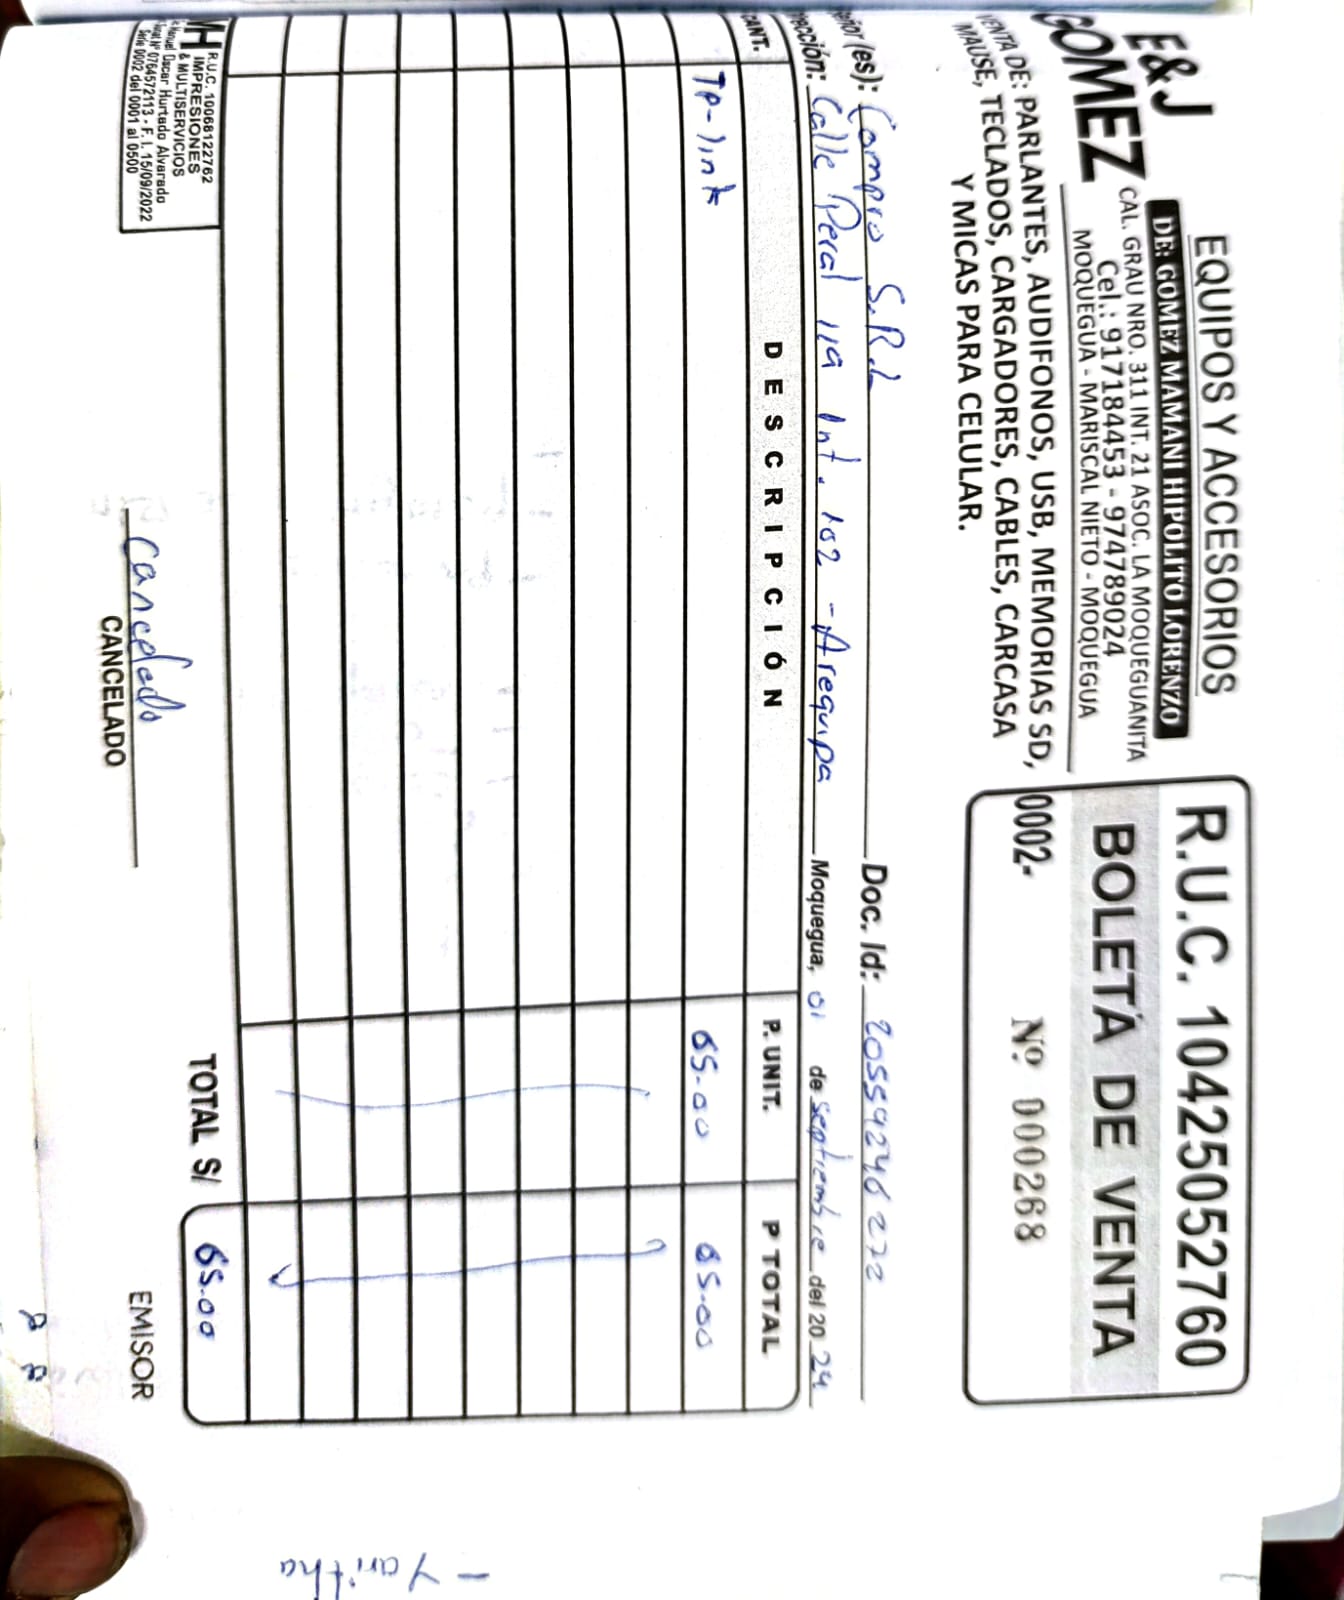 E&J
GOMEZ
EQUIPOS Y ACCESORIOS
DE: GOMEZ MAMANI HIPOLITO LORENZO
CAL. GRAU NRO. 311 INT. 21 ASOC. LA MOQUEGUANITA
Cel.: 917184453 - 974789024
MOQUEGUA - MARISCAL NIETO - MOQUEGUA
VENTA DE: PARLANTES, AUDIFONOS, USB, MEMORIAS SD,
MAUSE, TECLADOS, CARGADORES, CABLES, CARCASA
Y MICAS PARA CELULAR.
R.U.C. 10425052760
BOLETA DE VENTA
0002- Nº 000268
eñor(es): Compro S.R.L Doc. Id: 20559246272
rección: Calle Peral 119 Int. 102 - Arequipa Moquegua, 01 de Septiembre del 2024
CANT. DESCRIPCIÓN P. UNIT. P TOTAL
TP-link 65.00 65.00
TOTAL S/ 65.00
MH R.U.C. 10068122762
IMPRESIONES
& MULTISERVICIOS
Manuel Oscar Hurtado Alvarado
Nº 0764572113 - F. I. 15/09/2022
Serie 0002 del 0001 al 0500
Cancelado
CANCELADO
EMISOR
- Yaritha